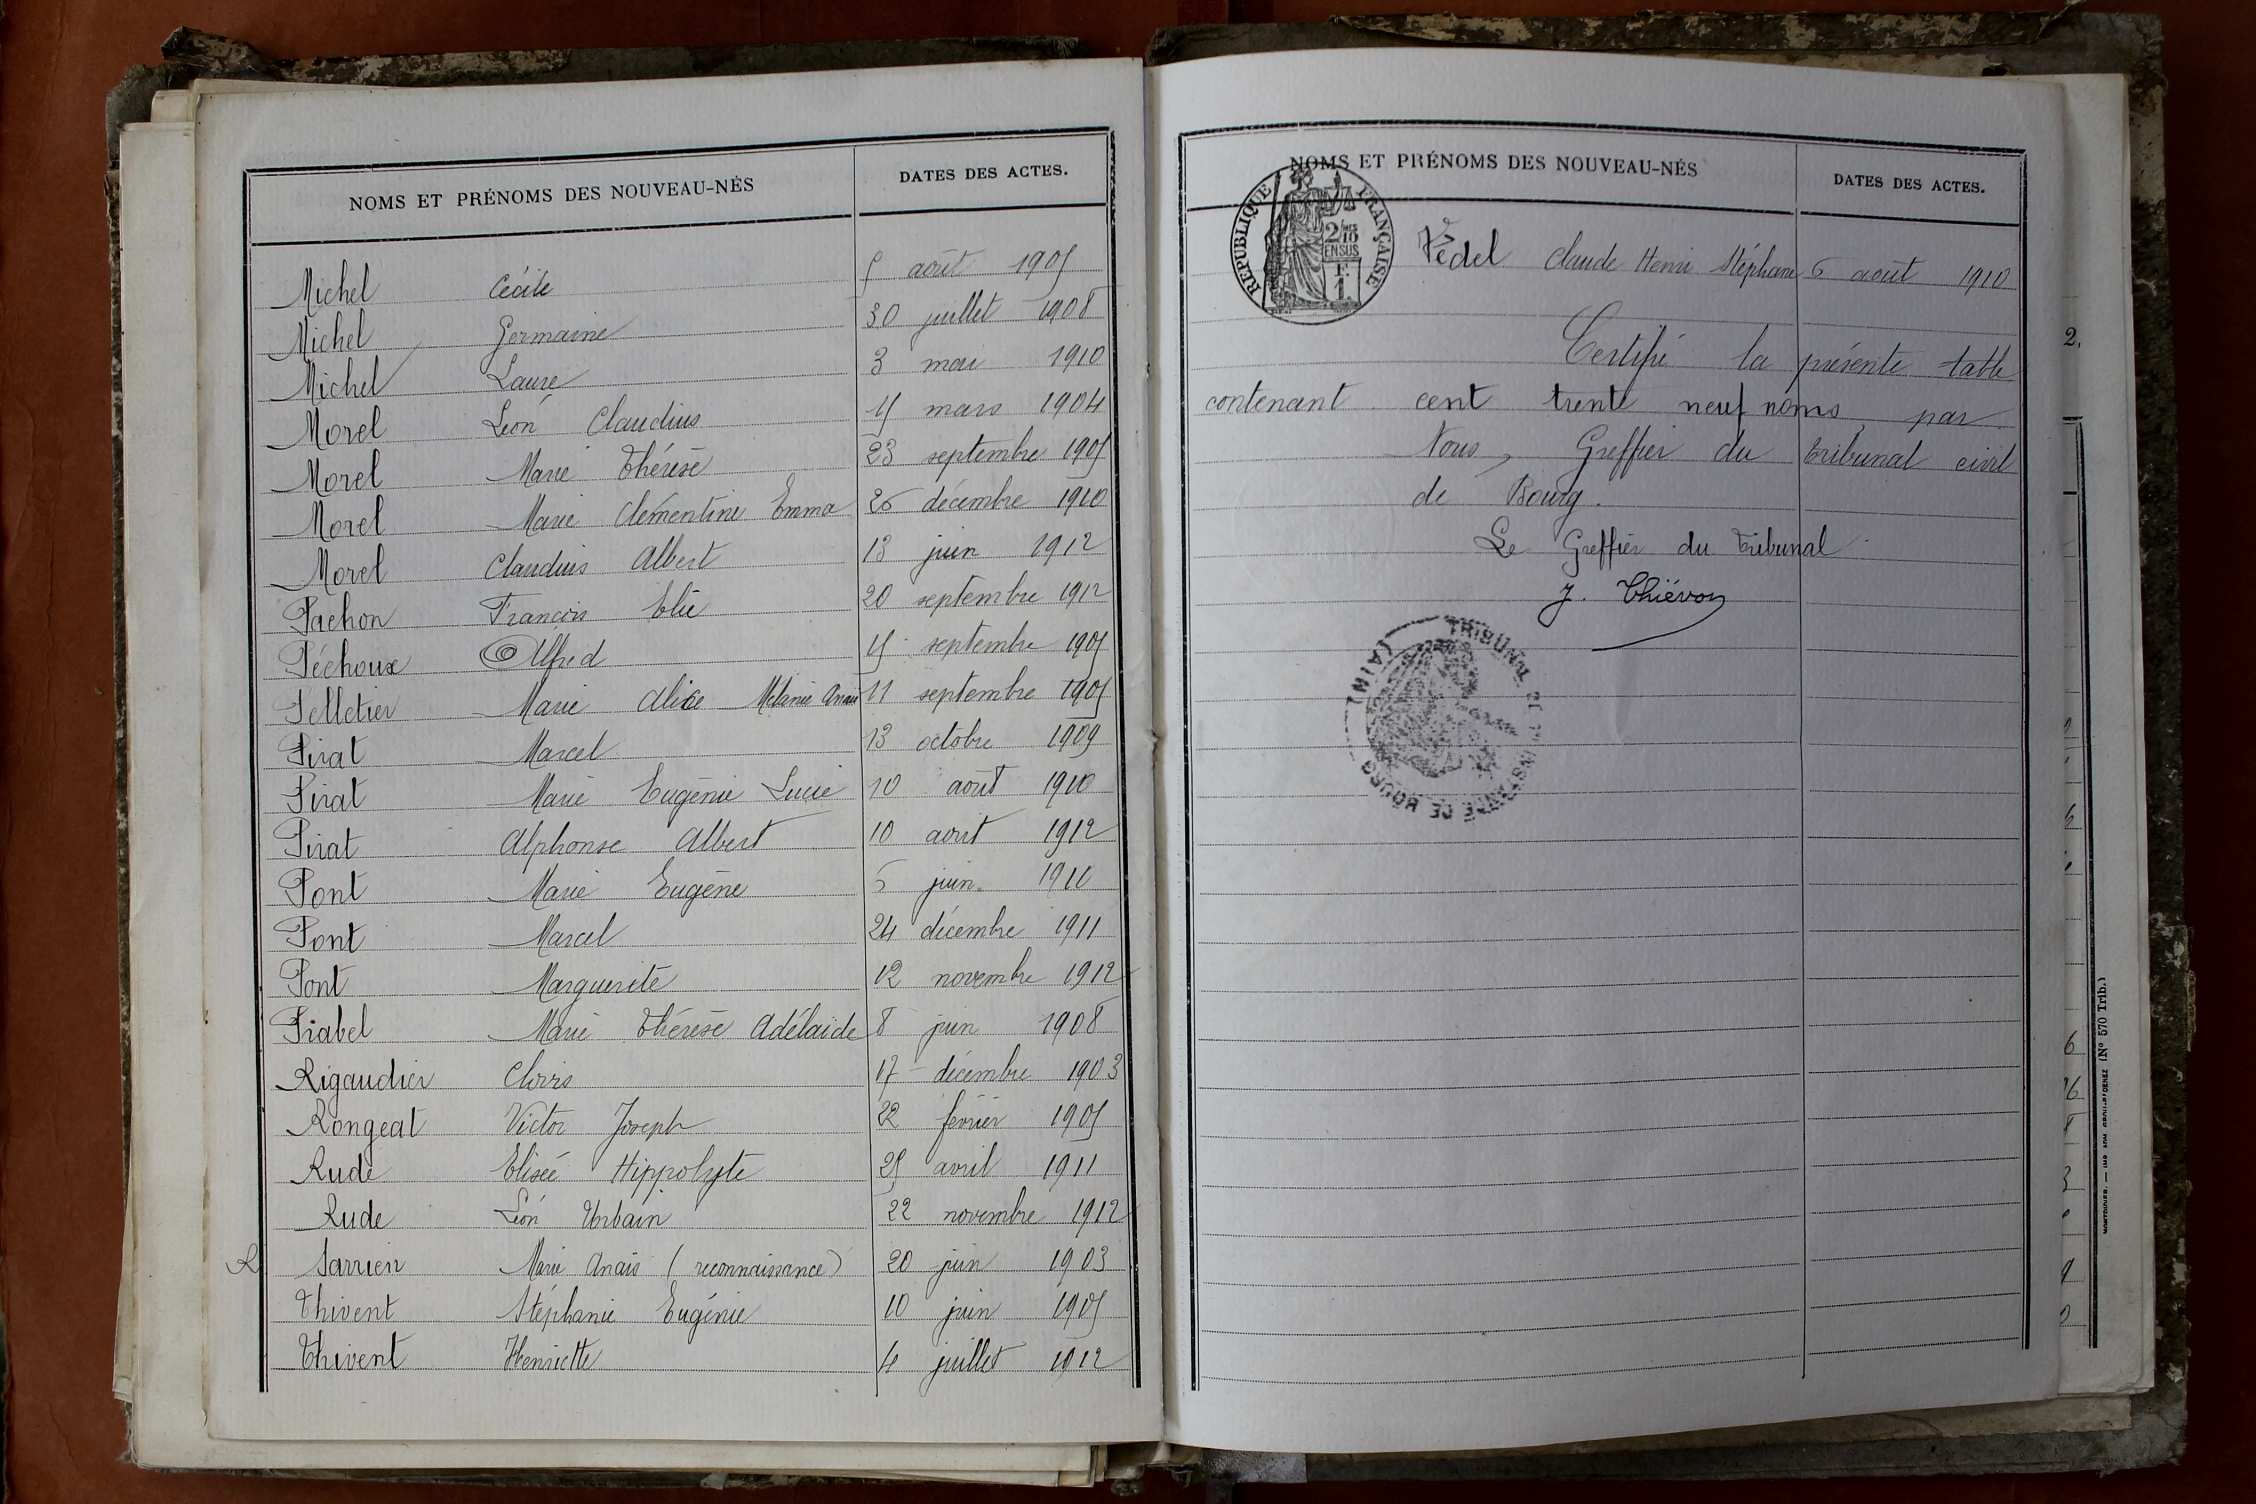 NOMS ET PRÉNOMS DES NOUVEAU-NÉS DATES DES ACTES.
Michel Cécile 5 août 1905
Michel Germaine 30 juillet 1908
Michel Laure 3 mai 1910
Morel Léon Claudius 15 mars 1904
Morel Marie Thérèse 23 septembre 1905
Morel Marie Clémentine Emma 26 décembre 1910
Morel Claudius Albert 13 juin 1912
Pachon François Elie 20 septembre 1912
Péchoux Alfred 15 septembre 1905
Pelletier Marie Alice Mélanie Anaïs 11 septembre 1905
Pirat Marcel 13 octobre 1909
Pirat Marie Eugénie Lucie 10 août 1910
Pirat Alphonse Albert 10 août 1912
Pont Marie Eugène 6 juin 1910
Pont Marcel 24 décembre 1911
Pont Marguerite 12 novembre 1912
Prabel Marie Thérèse Adélaïde 8 juin 1908
Rigaudier Clovis 17 décembre 1903
Rongeat Victor Joseph 22 février 1905
Rude Elisée Hippolyte 25 avril 1911
Rude Léon Urbain 22 novembre 1912
R Sarrien Marie Anaïs (reconnaissance) 20 juin 1903
Thivent Stéphanie Eugénie 10 juin 1905
Thivent Henriette 4 juillet 1912
NOMS ET PRÉNOMS DES NOUVEAU-NÉS DATES DES ACTES.
REPUBLIQUE FRANÇAISE
2/10
EN SUS
F.
1
Védel Claude Henri Stéphane 6 août 1910
Certifié la présente table
contenant cent trente neuf noms, par
Nous, Greffier du tribunal civil
de Bourg.
Le Greffier du Tribunal
J. Thiévon
TRIBUNAL DE 1RE INSTANCE DE BOURG (AIN)
2.
6
(No 570 Trib.)